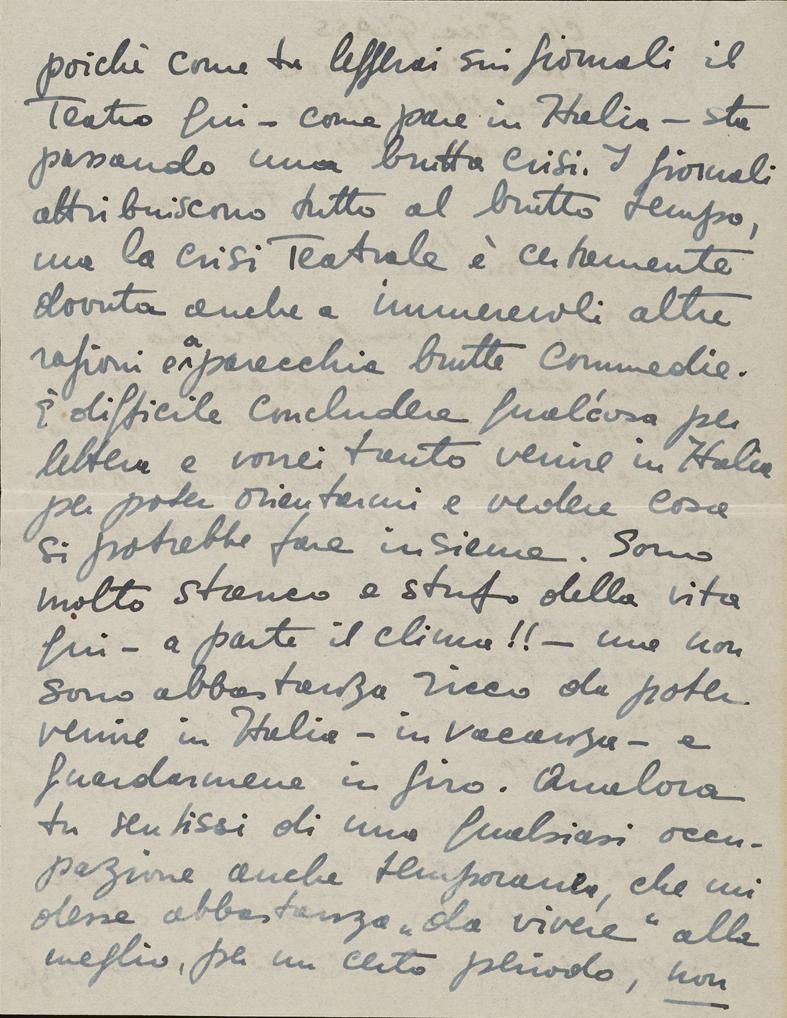 poichè come tu leggerai sui giornali il
Teatro qui – come pare in Italia – sta
passando una brutta crisi. I giornali
attribuiscono tutto al brutto tempo,
ma la crisi Teatrale è certamente
dovuta anche a innumerevoli altre
ragioni e a parecchie brutte Commedie.
È difficile concludere qualcosa per
lettera e vorrei tanto venire in Italia
per poter orientarmi e vedere cosa
si potrebbe fare insieme. Sono
molto stanco e stufo della vita
qui – a parte il clima!! – ma non
sono abbastanza ricco da poter
venire in Italia – in vacanza – e
guardarmene in giro. Qualora
tu sentissi di una qualsiasi occu-
pazione anche temporanea, che mi
desse abbastanza „da vivere“ alla
meglio, per un certo periodo, non